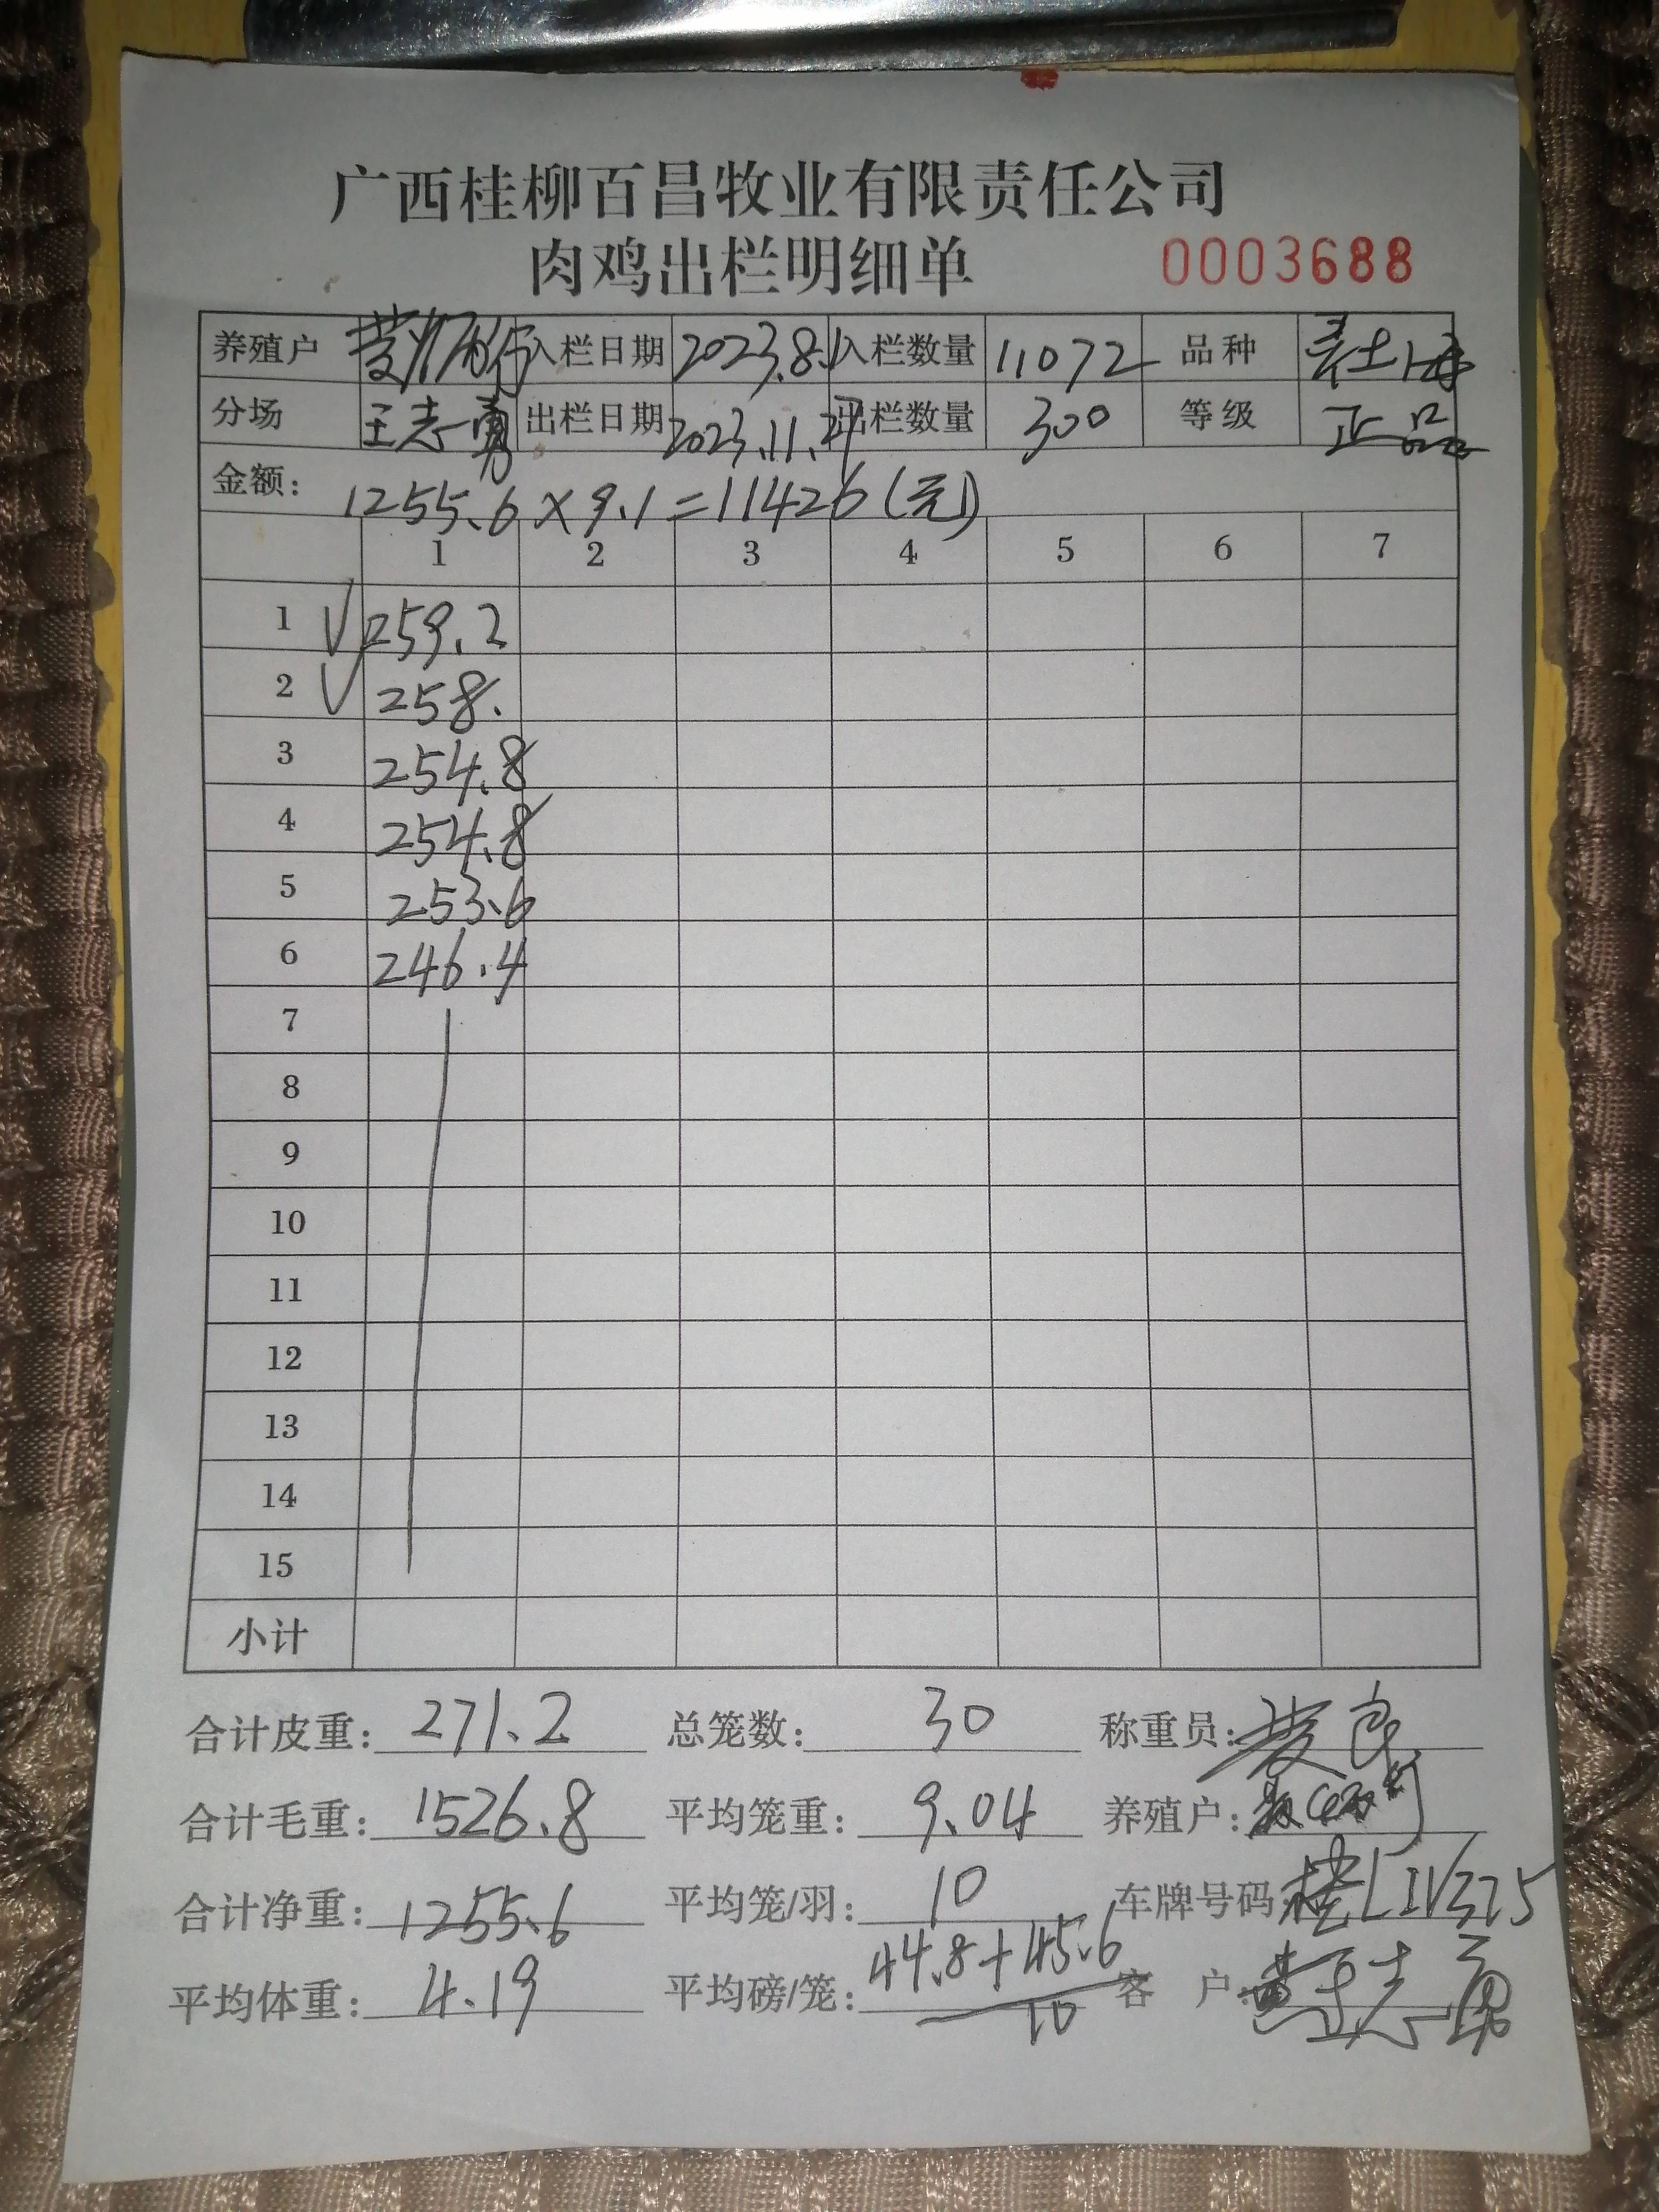 广西桂柳百昌牧业有限责任公司
肉鸡出栏明细单 0003688
养殖户 入栏日期 2023.8.1 入栏数量 11072 品种
分场 王志勇 出栏日期 2023.11.27 出栏数量 300 等级 正品
金额: 1255.6×9.1=11426(元)
1 2 3 4 5 6 7
1 √ 259.2
2 √ 258.
3 254.8
4 254.8
5 253.6
6 246.4
7
8
9
10
11
12
13
14
15
小计
合计皮重: 271.2 总笼数: 30 称重员:
合计毛重: 1526.8 平均笼重: 9.04 养殖户:
合计净重: 1255.6 平均笼/羽: 10 车牌号码:
平均体重: 4.19 平均磅/笼: 44.8+45.6/10 客 户: 王志勇